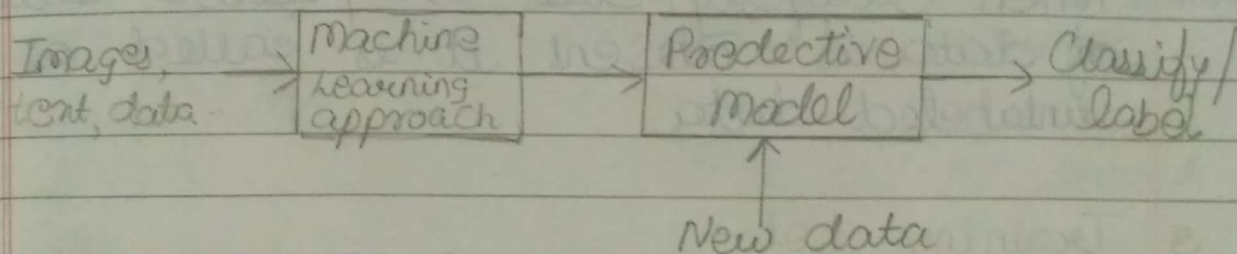 Images,
text, data
Machine
Learning
approach
Predective
Model
Classify/
label
New data